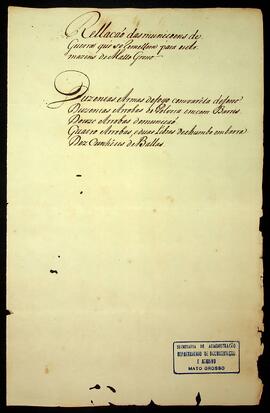 Rellação das muniçoens de
Guerra que se remettem para os Ar
mazens do Matto Groço
Duzentas Armas de fogo com vareta de ferro
Duzentas Arrobas de Polvora em cem Barris
Doze Arrobas de munição
Quatro Arrobas, e duas Libras de chumbo em barra
Dez Cunhetes de Ballas
SECRETARIA DE ADMINISTRAÇÃO
DEPARTAMENTO DE DOCUMENTAÇÃO
E ARQUIVO
MATO GROSSO